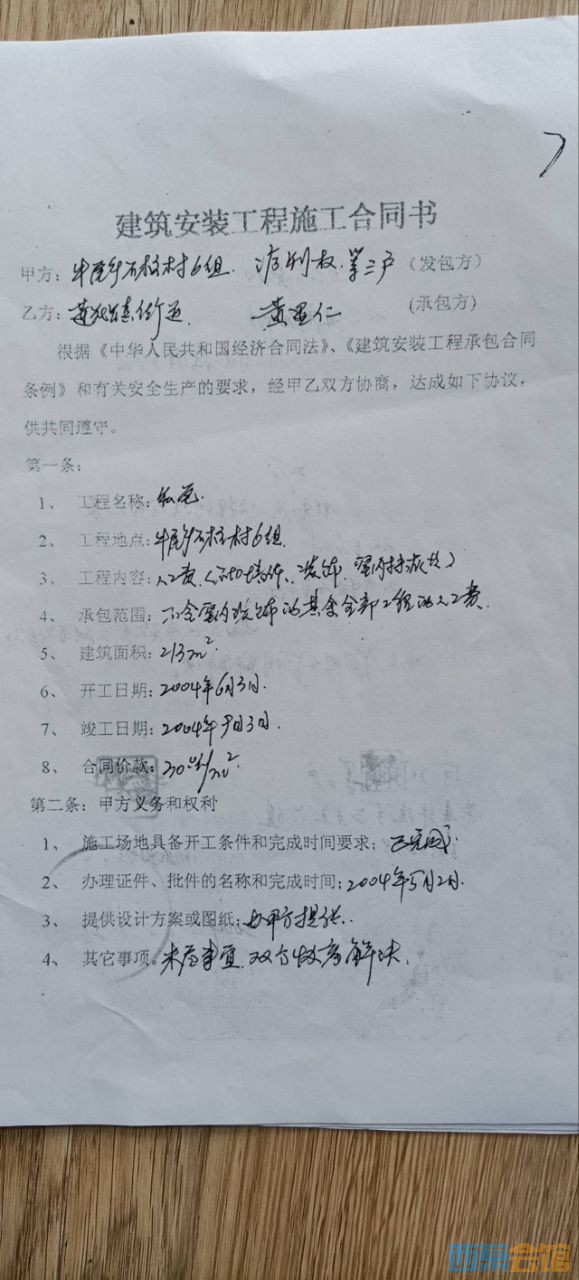 建筑安装工程施工合同书
甲方：牛尾乡石柱村6组. 等三户（发包方）
乙方：黄星仁（承包方）
根据《中华人民共和国经济合同法》、《建筑安装工程承包合同
条例》和有关安全生产的要求，经甲乙双方协商，达成如下协议，
供共同遵守。
第一条：
1、 工程名称：
2、 工程地点：牛尾乡石柱村6组.
3、 工程内容：人工费
4、 承包范围：不含室内装饰的其余全部工程的人工费.
5、 建筑面积：213m².
6、 开工日期：2004年6月3日.
7、 竣工日期：2004年9月3日.
8、 合同价款：/m²
第二条：甲方义务和权利
1、 施工场地具备开工条件和完成时间要求：已完成.
2、 办理证件、批件的名称和完成时间：2004年5月2日.
3、 提供设计方案或图纸：由甲方提供.
4、 其它事项。未尽事宜.双方协商解决.
西祠会馆